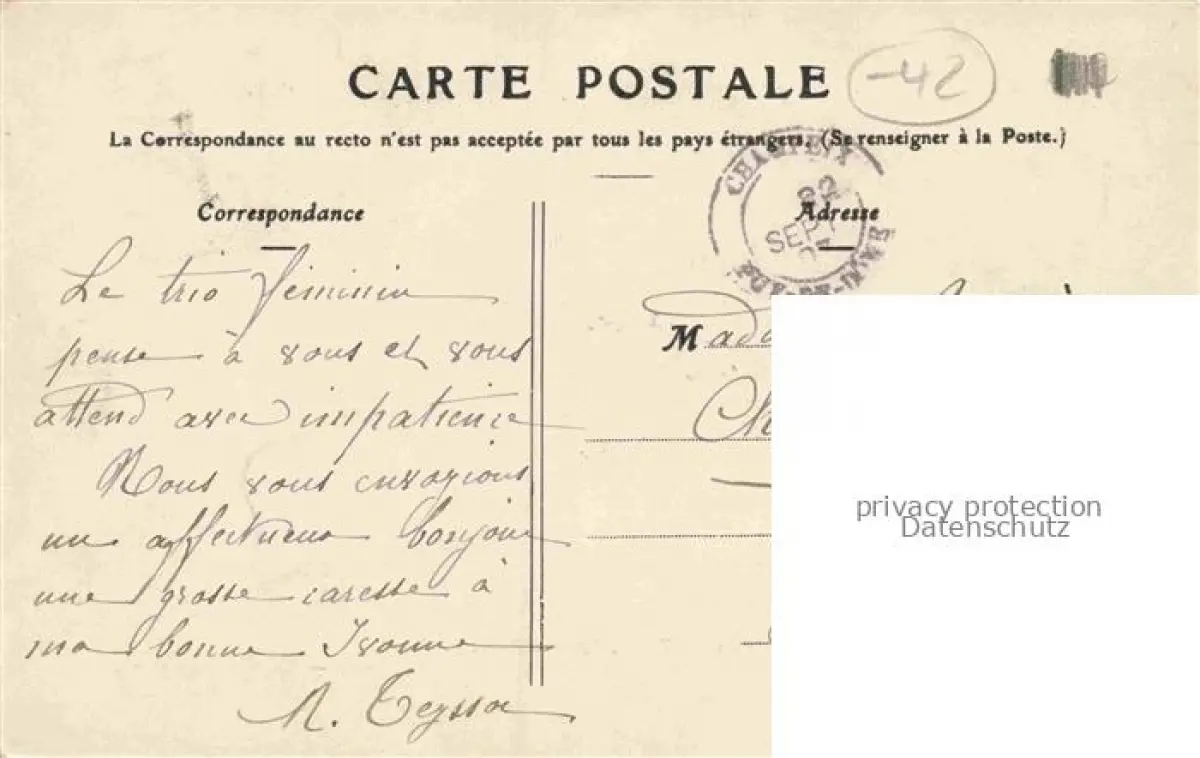 -42
CARTE POSTALE
La Correspondance au recto n'est pas acceptée par tous les pays étrangers. (Se renseigner à la Poste.)
CHAMPEIX
22
SEPT
PUY-DE-DOME
Correspondance
Adresse
Le trio féminin
pense à vous et vous
attend avec impatience
Nous vous envoyions
un affectueux bonjour
une grosse caresse à
ma bonne Ivonne
M
privacy protection
Datenschutz